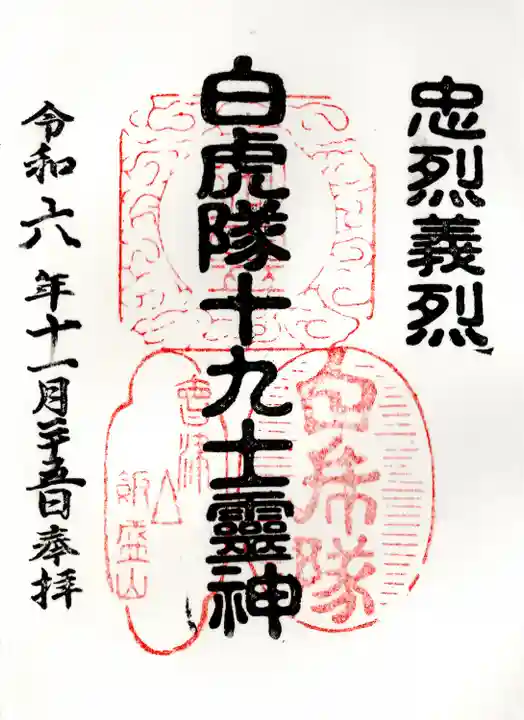 忠烈義烈
白虎隊十九士靈神
白乕隊
會津
飯盛山
令和六年十一月二十五日奉拝